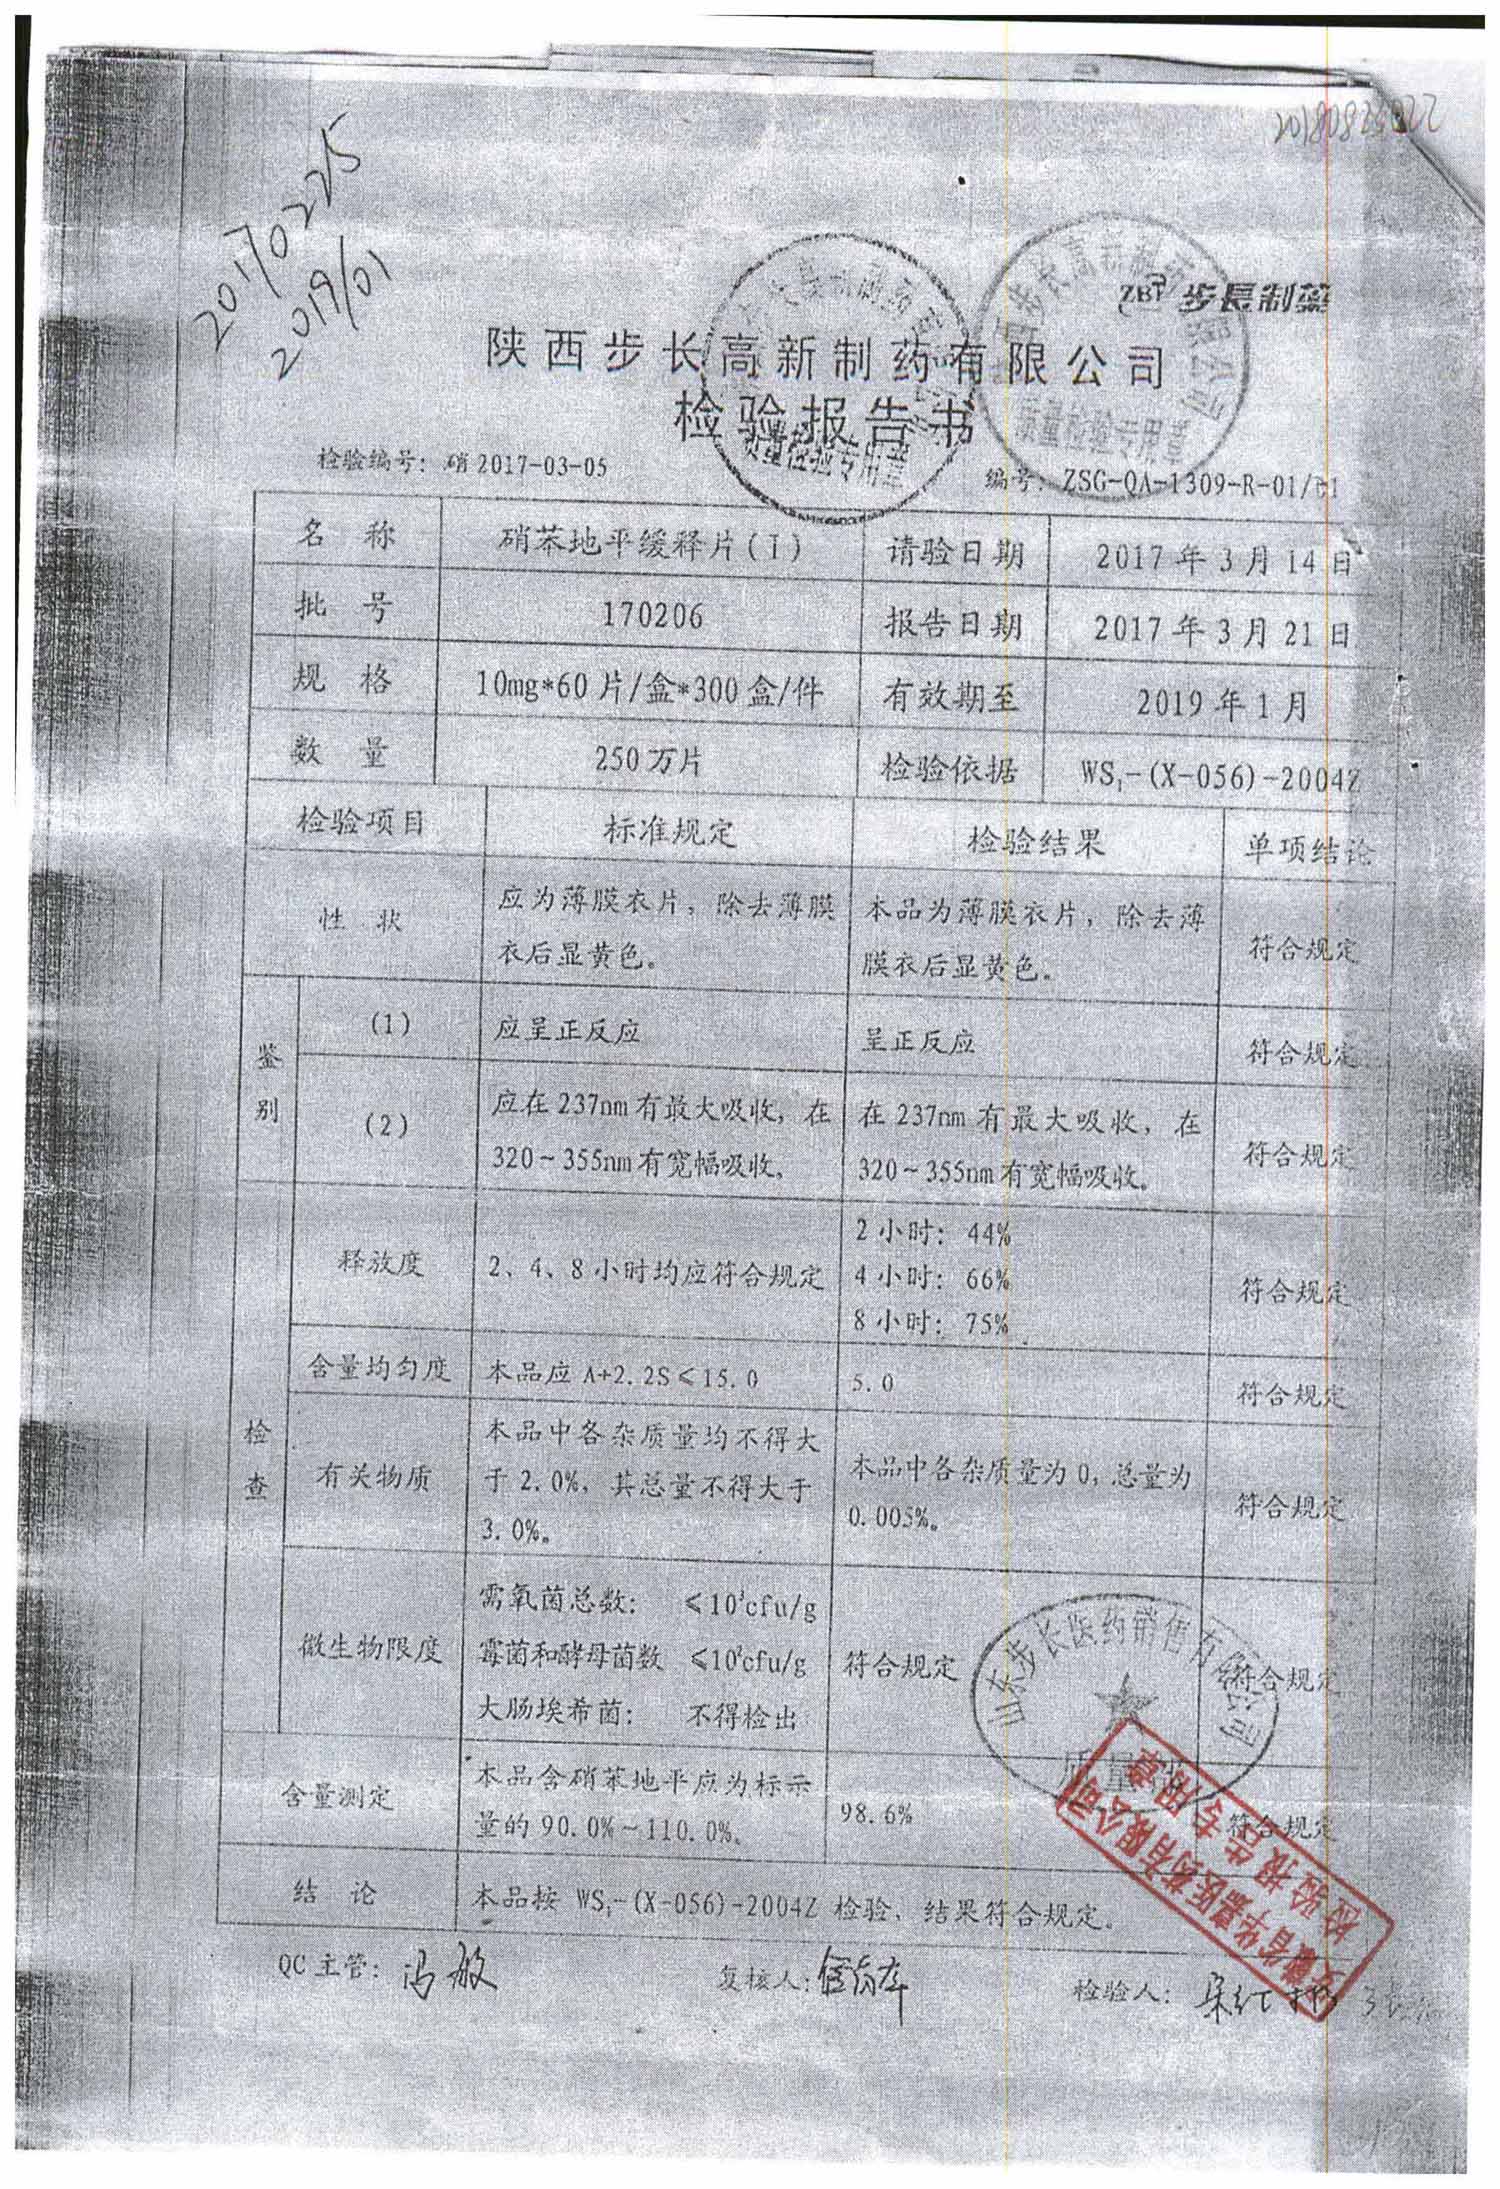 20170225
2019/01
ZBT 步長制藥
陕西步长高新制药有限公司
检验报告书
质量检验专用章
质量检验专用章
检验编号：硝 2017-03-05
编号：ZSG-QA-1309-R-01/
名 称 硝苯地平缓释片(I) 请验日期 2017 年 3 月 14 日
批 号 170206 报告日期 2017 年 3 月 21 日
规 格 10mg*60 片/盒*300 盒/件 有效期至 2019 年 1 月
数 量 250 万片 检验依据 WS₁-(X-056)-2004Z
检验项目 标准规定 检验结果 单项结论
性 状 应为薄膜衣片，除去薄膜 本品为薄膜衣片，除去薄 符合规定
衣后显黄色。 膜衣后显黄色。
鉴别 (1) 应呈正反应 呈正反应 符合规定
(2) 应在 237nm 有最大吸收，在 在 237nm 有最大吸收，在 符合规定
320～355nm 有宽幅吸收。 320～355nm 有宽幅吸收。
检查 释放度 2、4、8 小时均应符合规定 2 小时：44% 符合规定
4 小时：66%
8 小时：75%
含量均匀度 本品应 A+2.2S≤15.0 5.0 符合规定
有关物质 本品中各杂质量均不得大 本品中各杂质量为 0，总量为 符合规定
于 2.0%，其总量不得大于 0.005%。
3.0%。
微生物限度 需氧菌总数： ≤10³cfu/g 符合规定 符合规定
霉菌和酵母菌数 ≤10²cfu/g
大肠埃希菌： 不得检出
含量测定 本品含硝苯地平应为标示 98.6% 符合规定
量的 90.0%～110.0%。
结 论 本品按 WS₁-(X-056)-2004Z 检验，结果符合规定。
山东步长医药销售有限公司
质量
安徽省华嘉医药有限公司
检验报告专用章
QC 主管：冯敏
复核人：
检验人：